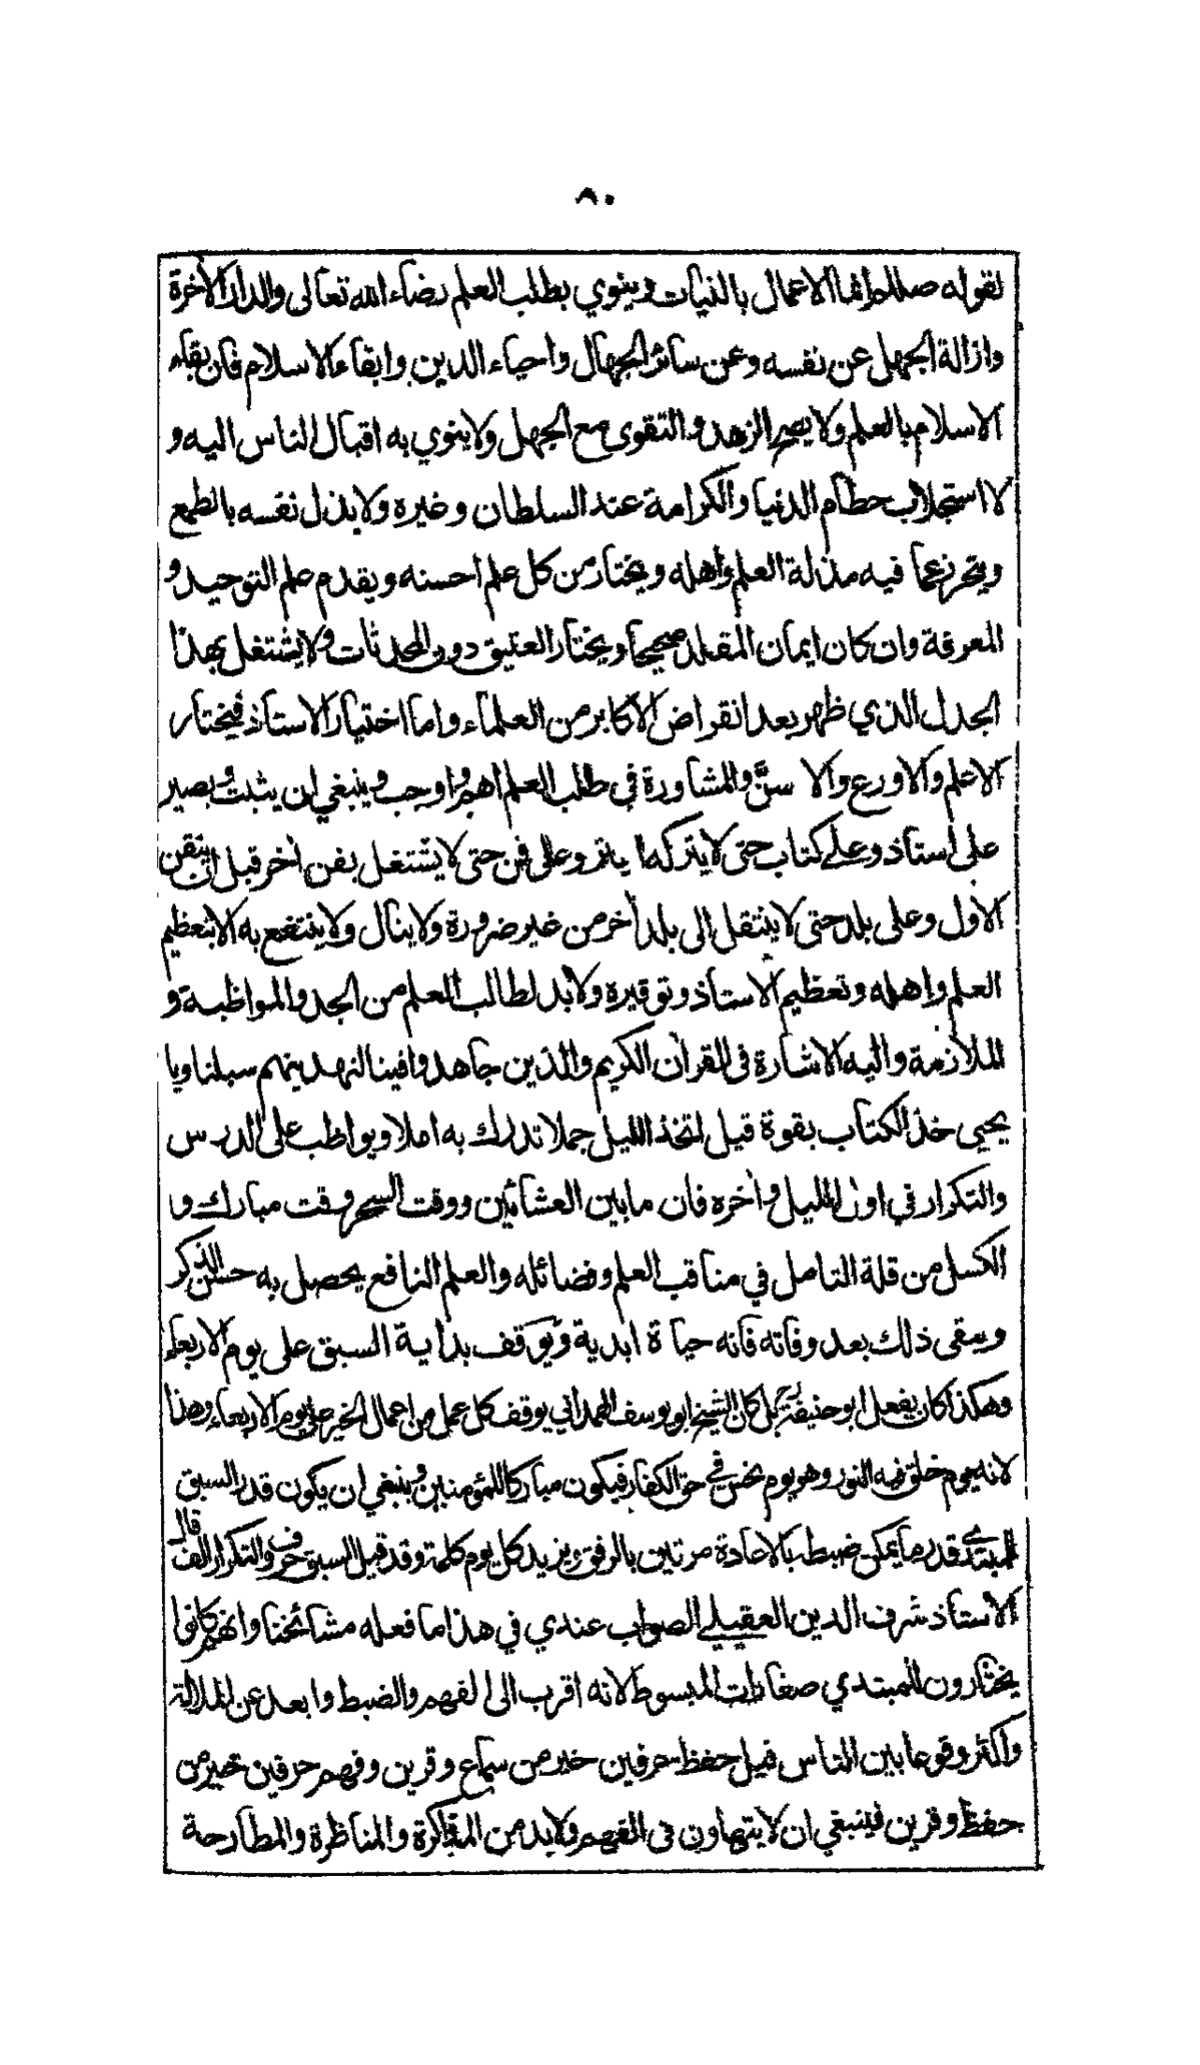 ٨٠
لقوله صللم انما الاعمال بالنيات وينوي بطلب العلم رضاء الله تعالى والدار الآخرة
وازالة الجهل عن نفسه وعن سائر الجهال واحياء الدين وابقاء الاسلام فان بقاء
الاسلام بالعلم ولا يصح الزهد والتقوى مع الجهل ولا ينوي به اقبال الناس اليه و
لا استجلاب حطام الدنيا والكرامة عند السلطان وغيره ولا يذل نفسه بالطمع
ويتحرز عما فيه مذلة العلم واهله ويختار من كل علم احسنه ويقدم علم التوحيد و
المعرفة وان كان ايمان المقلد صحيحا ويختار العتيق دون المحدثات ولا يشتغل بهذا
الجدل الذي ظهر بعد انقراض الاكابر من العلماء واما اختيار الاستاذ فيختار
الاعلم والاورع والا سنَّ والمشاورة في طلب العلم اهم واوجب وينبغي ان يثبت ويصير
على استاذ وعلى كتاب حتى لا يتركه ا بتر وعلى فن حتى لا يشتغل بفن آخر قبل ان يتقن
الاول وعلى بلد حتى لا ينتقل الى بلد أخر من غير ضرورة ولا ينال ولا ينتفع به الا بتعظيم
العلم واهله وتعظيم الاستاذ وتوقيره ولابد لطالب العلم من الجد والمواظبة و
الملازمة واليه الاشارة فى القرآن الكريم والذين جاهدوا فينا لنهدينهم سبلنا ويا
يحيى خذ الكتاب بقوة قيل اتخذ الليل جملا تدرك به املا ويواظب على الدرس
والتكرار في اول الليل وآخره فان ما بين العشائين ووقت السحر وقت مبارك و
الكسل من قلة التامل في مناقب العلم وفضائله والعلم النافع يحصل به حسن الذكر
ويبقى ذلك بعد وفاته فانه حياة ابدية ويوقف بداية السبق على يوم الاربعاء
وهكذا كان يفعل ابو حنيفة رح بل كان الشيخ ابو يوسف الهمداني يوقف كل عمل من اعمال الخير على يوم الاربعاء وهذا
لانه يوم خلق فيه النور وهو يوم نحس في حق الكفار فيكون مباركا للمؤمنين وينبغي ان يكون قدر السبق
للمبتدي قدر ما يمكن ضبطه بالاعادة مرتين بالرفق ويزيد كل يوم كلمة وقد قيل السبق حرف والتكرار الف قال
الاستاذ شرف الدين العقيلي الصواب عندي في هذا ما فعله مشائخنا وانهم كانوا
يختارون للمبتدي صغارات المبسوط لانه اقرب الى الفهم والضبط وابعد عن الملالة
واكثر وقوعا بين الناس قيل حفظ حرفين خير من سماع وقرين وفهم حرفين خير من
حفظ وقرين فينبغي ان لا يتهاون فى الفهم ولابد من المذاكرة والمناظرة والمطارحة